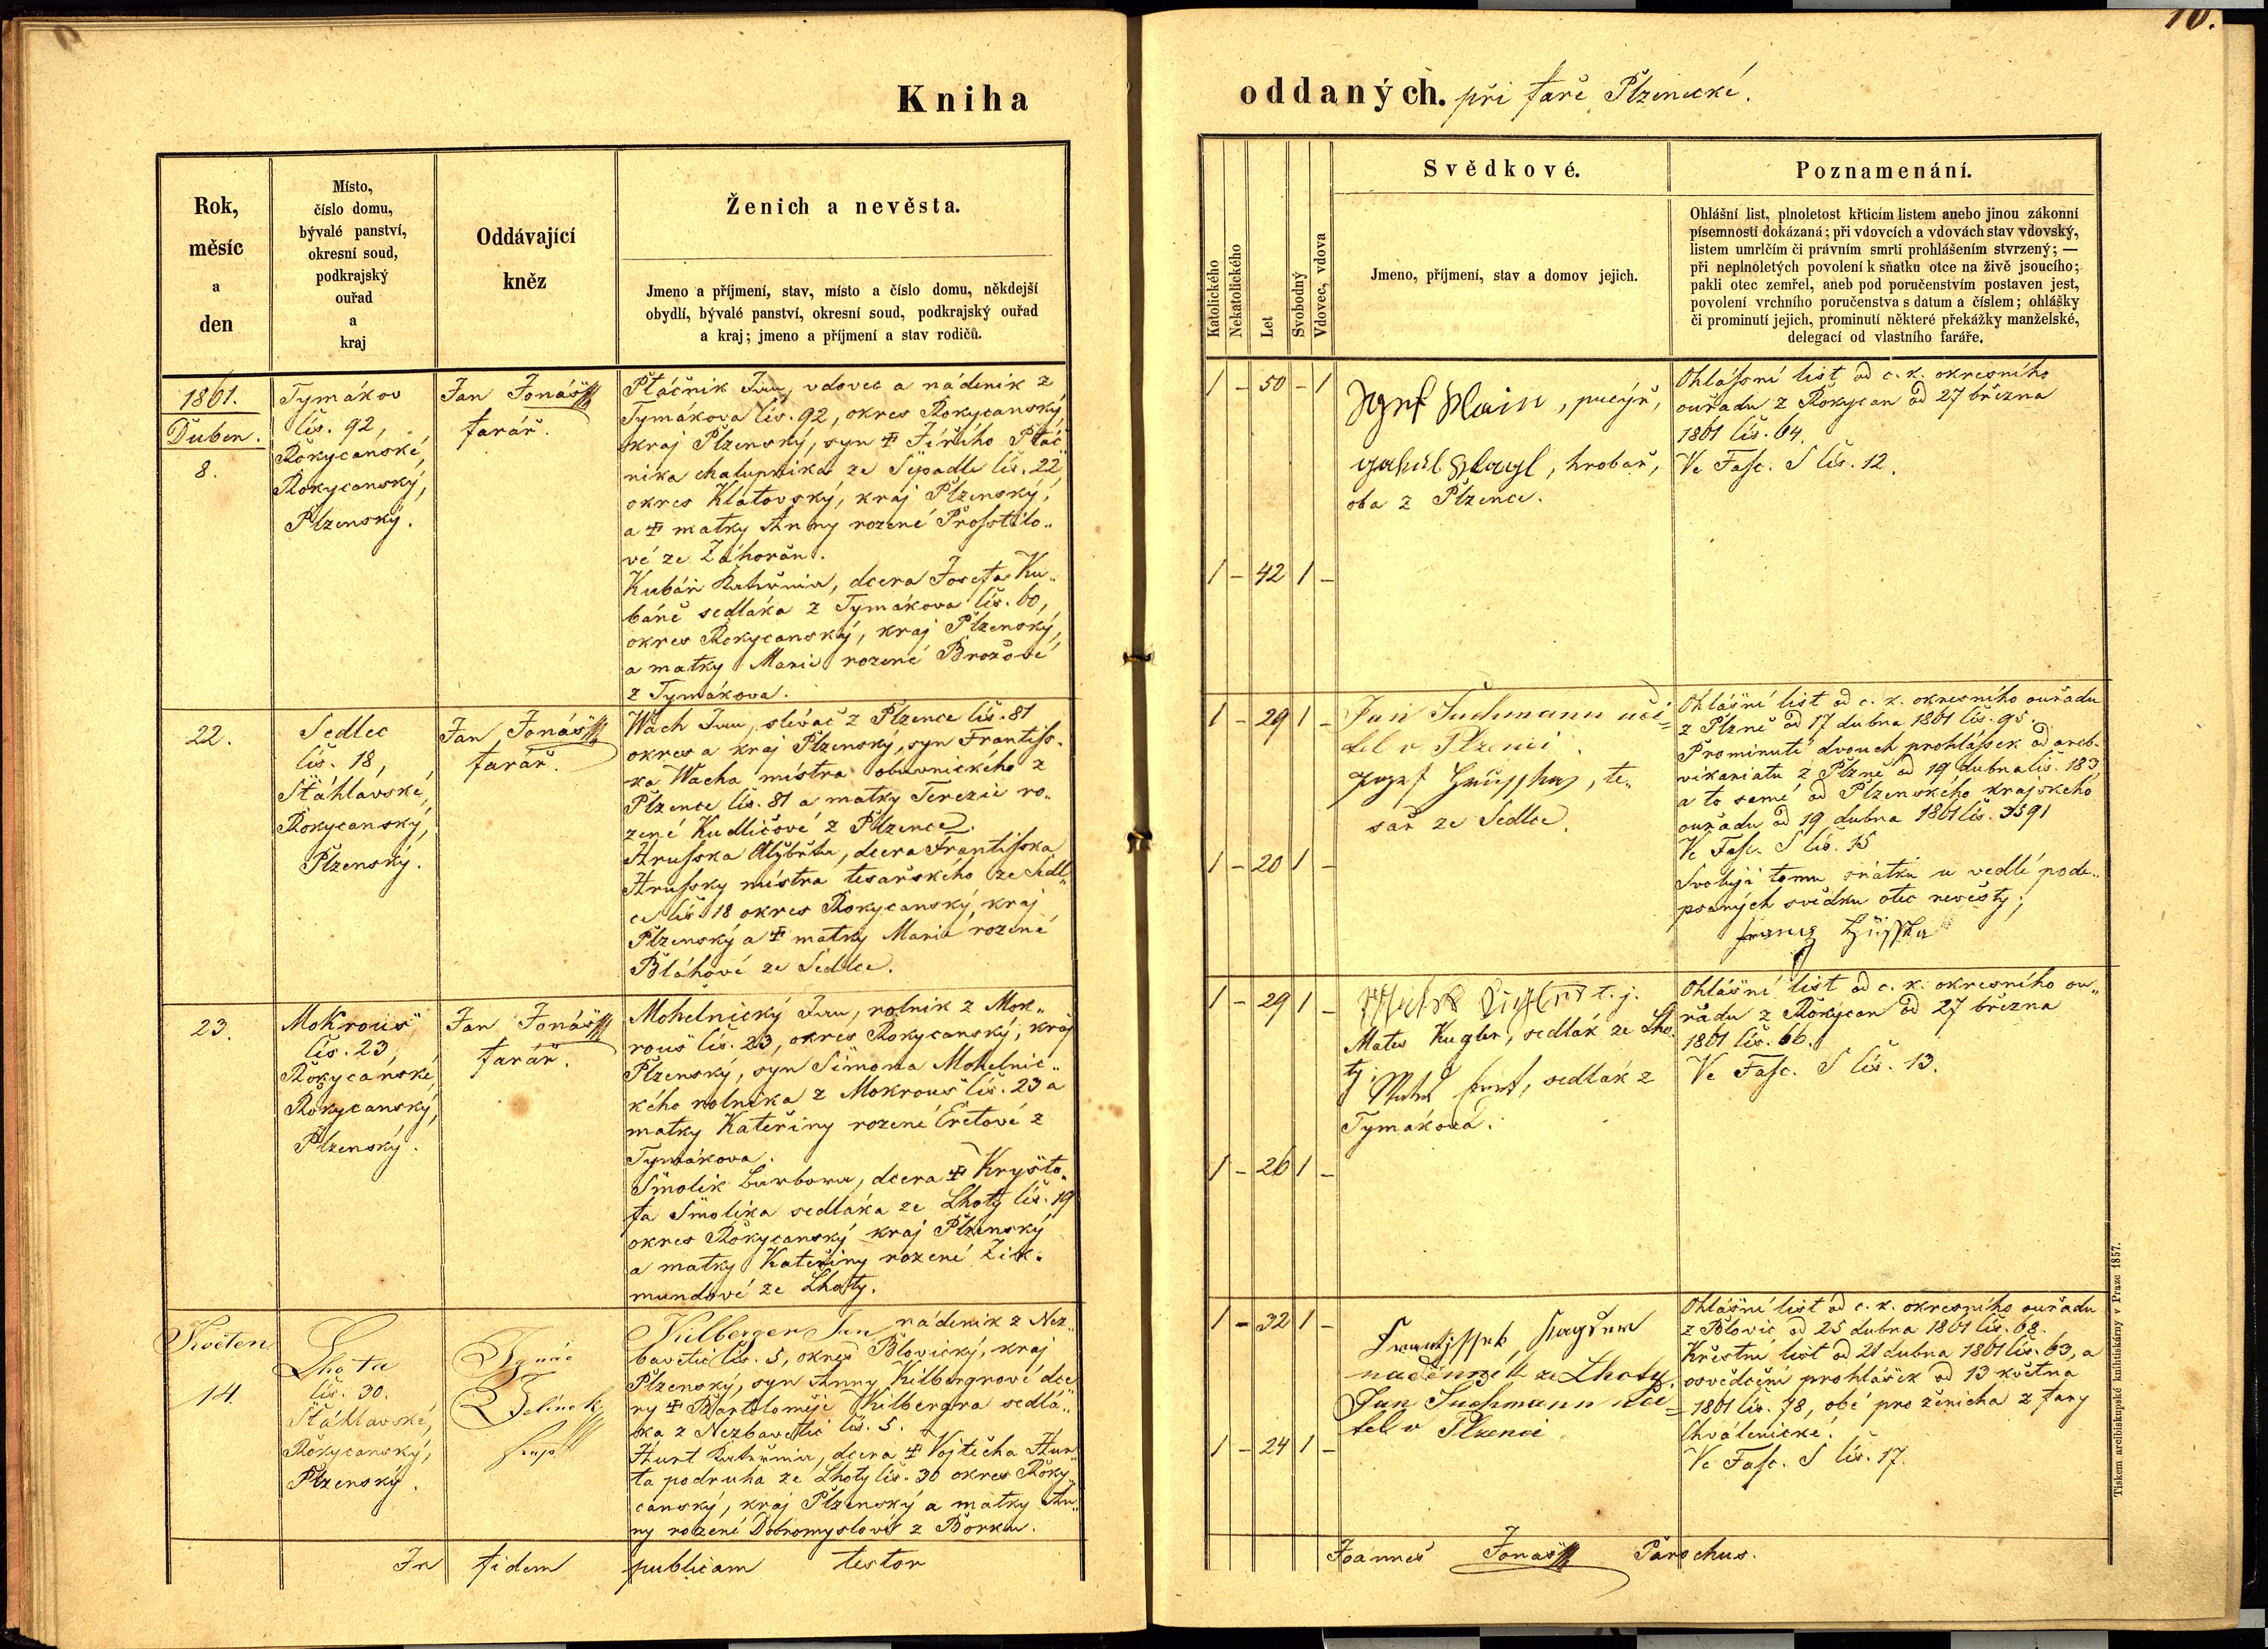 Kniha
oddaných. při faře Plzenecké.
10.
Rok,
měsíc
a
den
Místo,
číslo domu,
bývalé panství,
okresní soud,
podkrajský
ouřad
a
kraj
Oddávající
kněz
Ženich a nevěsta.
Jmeno a příjmení, stav, místo a číslo domu, někdejší
obydlí, bývalé panství, okresní soud, podkrajský ouřad
a kraj; jmeno a příjmení a stav rodičů.
Katolického
Nekatolického
Let
Svobodný
Vdovec, vdova
Svědkové.
Jmeno, příjmení, stav a domov jejich.
Poznamenání.
Ohlášní list, plnoletost křticím listem anebo jinou zákonní
písemností dokázaná; při vdovcích a vdovách stav vdovský,
listem umrlčím či právním smrti prohlášením stvrzený; —
při neplnoletých povolení k sňatku otce na živě jsoucího;
pakli otec zemřel, aneb pod poručenstvím postaven jest,
povolení vrchního poručenstva s datum a číslem; ohlášky
či prominutí jejich, prominutí některé překážky manželské,
delegací od vlastního faráře.
1861.
Duben.
8.
Tymákov
čís. 92,
Rokycanské,
Rokycanský,
Plzenský.
Jan Jonáš
farář.
Ptáčník Jan, vdovec a nádeník z
Tymákova čís. 92, okres Rokycanský,
kraj Plzenský, syn ✝ Jiřího Ptáč
níka chalupníka ze Sýpadle čís. 22
okres Klatovský, kraj Plzenský,
a ✝ matky Anny rozené Prosstilo„
vé ze Záhořan.
Kubáň Kateřina, dcera Josefa Ku„
báně sedláka z Tymákova čís. 60,
okres Rokycanský, kraj Plzenský,
a matky Marie rozené Brožové
z Tymákova.
1 – 50 – 1
1 – 42 1 –
, hrobař,
oba z Plzence.
Ohlássní list od c. k. okresního
ouřadu z Rokycan od 27 března
1861 čís. 64.
Ve Fasc. S čís. 12.
22.
Sedlec
čís. 18,
Štáhlavské,
Rokycanský,
Plzenský.
Jan Jonáš
farář.
Wach Jan, slévač z Plzence čís. 81
okres a kraj Plzenský, syn Frantiss„
ka Wacha mistra obuvnického z
Plzence čís. 81 a matky Terezie ro„
zené Kudličové z Plzence.
Hrusska Alžběta, dcera Frantisska
Hrussky mistra tesařského ze Sedl„
ce čís. 18 okres Rokycanský, kraj
Plzenský a ✝ matky Marie rozené
Bláhové ze Sedlce.
1 – 29 1 –
1 – 20 1 –
Jan Suchmann uči=
tel v Plzenci.
Josef Hrusska, te„
sař ze Sedlce.
Ohlášní list od c. k. okresního ouřadu
z Plzně od 17 dubna 1861 čís. 95.
Prominutí dvouch prohlássek od arcb.
vikariatu z Plzně od 19 dubna čís. 183,
a to samé od Plzenského krajského
ouřadu od 19 dubna 1861 čís. 3591
Ve Fasc. S čís. 15
Svoluji tomu sňatku u vedlé pode„
psaných svědku otec nevěsty;
Franz Hrusska
23.
Mokrouš
čís. 23,
Rokycanské,
Rokycanský,
Plzenský.
Jan Jonáš
farář.
Mohelnický Jan, rolník z Mok„
rouš čís. 23, okres Rokycanský, kraj
Plzenský, syn Šimona Mohelnic„
kého rolníka z Mokrouš čís. 23 a
matky Kateřiny rozené Eretové z
Tymákova.
Smolík Barbora, dcera ✝ Kryšto„
fa Smolíka sedláka ze Lhoty čís. 19
okres Rokycanský kraj Plzenský
a matky Kateřiny rozené Zik„
mundové ze Lhoty.
1 – 29 1 –
1 – 26 1 –
t. j.
Mates Kugler, sedlák ze Lho„
ty.
, sedlák z
Tymákova.
Ohlášní list od c. k. okresního ou„
řadu z Rokycan od 27 března
1861 čís. 66.
Ve Fasc. S čís. 13.
Květen
14.
Lhota
čís. 30.
Štáhlavské,
Rokycanský,
Plzenský.
Ignác
Jelínek
Kilberger Jan nádeník z Nez„
bavětic čís. 5, okres Blovický, kraj
Plzenský, syn Anny Kilbergrové dce
ry ✝ Bartoloměje Kilbergra sedlá„
ka z Nezbavětic čís. 5.
Hurt Kateřina, dcera ✝ Vojtěcha Hur
ta podruha ze Lhoty čís. 30 okres Roky„
canský, kraj Plzenský a matky An„
ny rozené Dobromyslové z Borku.
1 – 32 1 –
1 – 24 1 –
Frantissek
nadenník ze Lhoty.
Jan Suchmann uči=
tel v Plzenci
Ohlášní list od c. k. okresního ouřadu
z Blovic od 25 dubna 1861 čís. 68.
Křestní list od 21 dubna 1861 čís. 63, a
osvědčení prohlášek od 13 května
1861 čís. 78, obé pro ženicha z fary
Chválenické.
Ve Fasc. S čís. 17.
In fidem publicam testor
Joannes Jonáš Parochus.
Tiskem arcibiskupské knihtiskárny v Praze 1857.